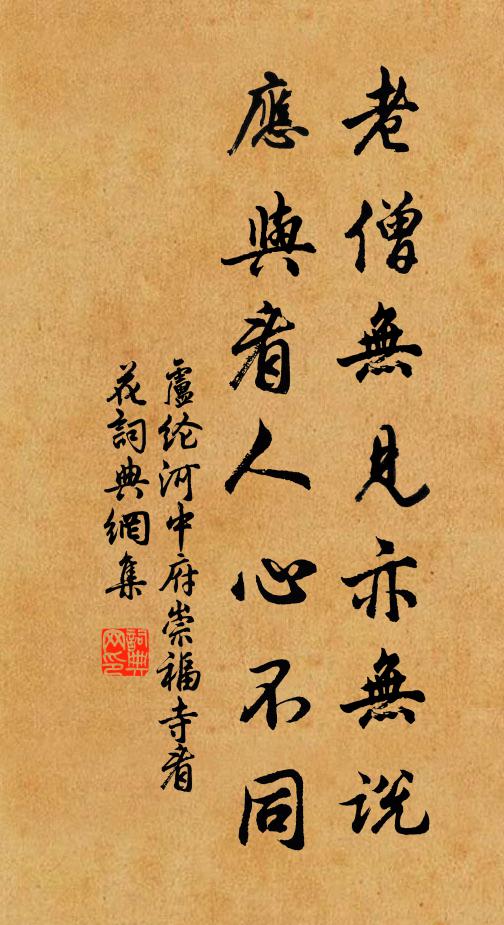 老僧無見亦無説
應與看人心不同
盧纶河中府崇福寺看
花詞典網集
詞典网印